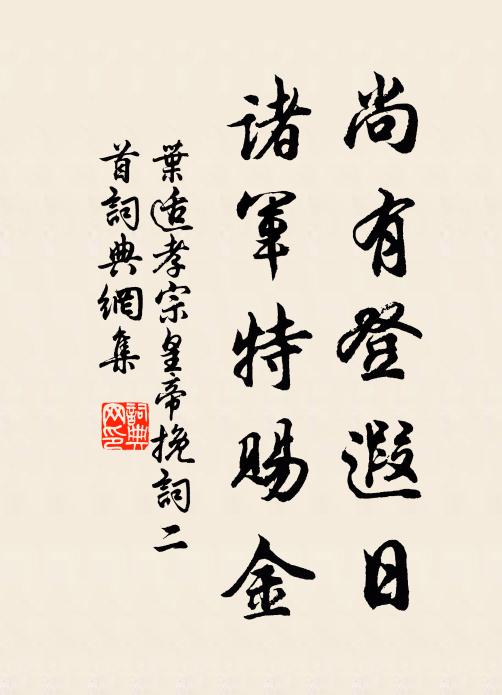 尚有登遐日
诸军特赐金
葉适孝宗皇帝挽詞二
首詞典網集
詞典网印